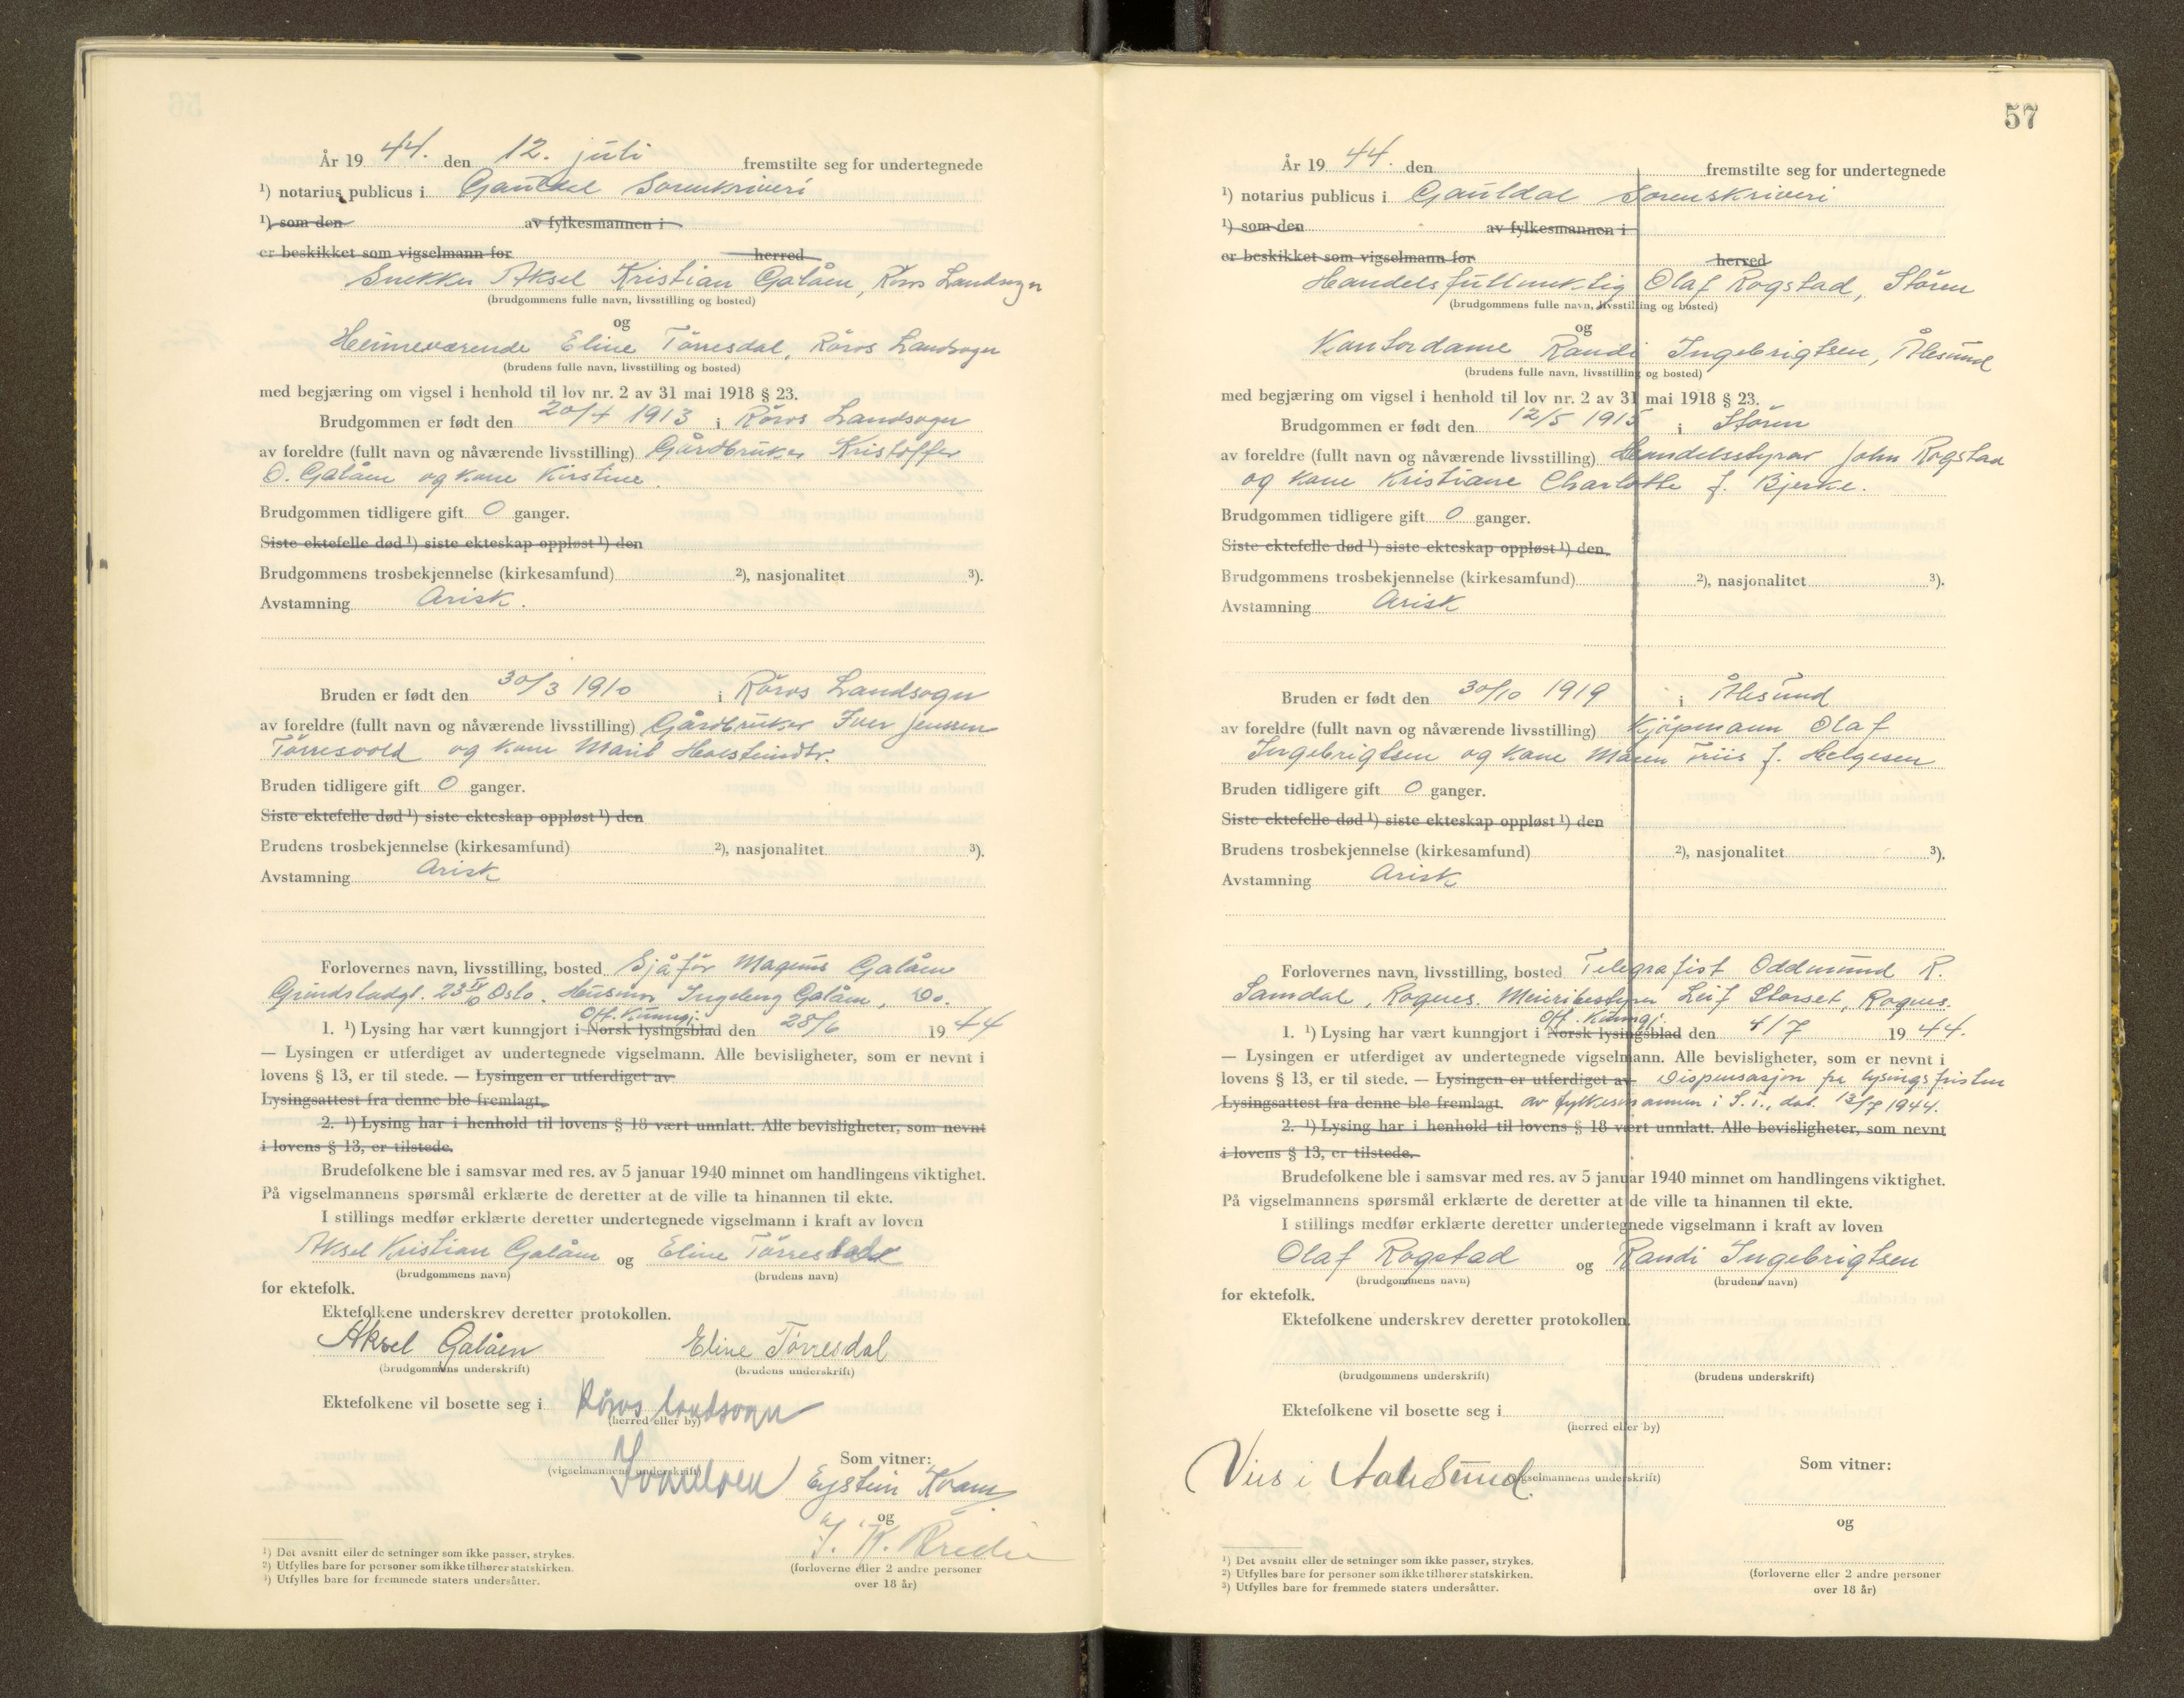 År 19 44. den 12. juli fremstilte seg for undertegnede
¹) notarius publicus i Gauldal Sorenskriveri
¹) som den av fylkesmannen i
er beskikket som vigselmann for herred
Snekker Aksel Kristian Galåen, Röros Landsogn
(brudgommens fulle navn, livsstilling og bosted)
og
Heimeværende Eline Törresdal, Röros Landsogn
(brudens fulle navn, livsstilling og bosted)
med begjæring om vigsel i henhold til lov nr. 2 av 31 mai 1918 § 23.
Brudgommen er født den 20/4 1913 i Röros Landsogn
av foreldre (fullt navn og nåværende livsstilling) Gårdbruker Kristoffer
O. Galåen og kone Kirstine.
Brudgommen tidligere gift 0 ganger.
Siste ektefelle død ¹) siste ekteskap oppløst ¹) den
Brudgommens trosbekjennelse (kirkesamfund) ²), nasjonalitet ³).
Avstamning Arisk.
Bruden er født den 30/3 1910 i Röros Landsogn
av foreldre (fullt navn og nåværende livsstilling) Gårdbruker Iver Jensen
Törresvold og kone Marit Holsteindtr.
Bruden tidligere gift 0 ganger.
Siste ektefelle død ¹) siste ekteskap oppløst ¹) den
Brudens trosbekjennelse (kirkesamfund) ²), nasjonalitet ³).
Avstamning Arisk
Forlovernes navn, livsstilling, bosted Sjåför Magnus Galåen
Grindstadgt. 23 Oslo. Husmor Ingeborg Galåen, Do.
Off. Kunngj.
1. ¹) Lysing har vært kunngjort i Norsk lysingsblad den 28/6 19 44
— Lysingen er utferdiget av undertegnede vigselmann. Alle bevisligheter, som er nevnt i
lovens § 13, er til stede. — Lysingen er utferdiget av
Lysingsattest fra denne ble fremlagt.
2. ¹) Lysing har i henhold til lovens § 18 vært unnlatt. Alle bevisligheter, som nevnt
i lovens § 13, er tilstede.
Brudefolkene ble i samsvar med res. av 5 januar 1940 minnet om handlingens viktighet.
På vigselmannens spørsmål erklærte de deretter at de ville ta hinannen til ekte.
I stillings medfør erklærte deretter undertegnede vigselmann i kraft av loven
Aksel Kristian Galåen og Eline Törresdal
(brudgommens navn) (brudens navn)
for ektefolk.
Ektefolkene underskrev deretter protokollen.
Aksel Galåen Eline Törresdal
(brudgommens underskrift) (brudens underskrift)
Ektefolkene vil bosette seg i Röros landsogn
(herred eller by)
Som vitner:
(vigselmannens underskrift)
Eystein Kvam
og
(forloverne eller 2 andre personer
over 18 år)
¹) Det avsnitt eller de setninger som ikke passer, strykes.
²) Utfylles bare for personer som ikke tilhører statskirken.
³) Utfylles bare for fremmede staters undersåtter.
57
År 19 44. den fremstilte seg for undertegnede
¹) notarius publicus i Gauldal Sorenskriveri
¹) som den av fylkesmannen i
er beskikket som vigselmann for herred
Handelsfullmektig Olaf Rogstad, Stören
(brudgommens fulle navn, livsstilling og bosted)
og
Kontordame Randi Ingebrigtsen, Ålesund
(brudens fulle navn, livsstilling og bosted)
med begjæring om vigsel i henhold til lov nr. 2 av 31 mai 1918 § 23.
Brudgommen er født den 12/5 1915 i Stören
av foreldre (fullt navn og nåværende livsstilling) Handelsstyrar John Rogstad
og kone Kristiane Charlotte f. Bjerke.
Brudgommen tidligere gift 0 ganger.
Siste ektefelle død ¹) siste ekteskap oppløst ¹) den
Brudgommens trosbekjennelse (kirkesamfund) ²), nasjonalitet ³).
Avstamning Arisk
Bruden er født den 30/10 1919 i Ålesund
av foreldre (fullt navn og nåværende livsstilling) Kjöpmann Olaf
Ingebrigtsen og kone Maren Friis f. Helgesen
Bruden tidligere gift 0 ganger.
Siste ektefelle død ¹) siste ekteskap oppløst ¹) den
Brudens trosbekjennelse (kirkesamfund) ²), nasjonalitet ³).
Avstamning Arisk
Forlovernes navn, livsstilling, bosted Telegrafist Oddmund R.
Samdal, Rognes. Meieribestyrer Leif Storset, Rognes.
Off. Kunngj.
1. ¹) Lysing har vært kunngjort i Norsk lysingsblad den 4/7 19 44.
— Lysingen er utferdiget av undertegnede vigselmann. Alle bevisligheter, som er nevnt i
lovens § 13, er til stede. — Lysingen er utferdiget av Dispensasjon fra lysingsfristen
Lysingsattest fra denne ble fremlagt. av fylkesmannen i S.T., dat. 13/7 1944.
2. ¹) Lysing har i henhold til lovens § 18 vært unnlatt. Alle bevisligheter, som nevnt
i lovens § 13, er tilstede.
Brudefolkene ble i samsvar med res. av 5 januar 1940 minnet om handlingens viktighet.
På vigselmannens spørsmål erklærte de deretter at de ville ta hinannen til ekte.
I stillings medfør erklærte deretter undertegnede vigselmann i kraft av loven
Olaf Rogstad og Randi Ingebrigtsen
(brudgommens navn) (brudens navn)
for ektefolk.
Ektefolkene underskrev deretter protokollen.
(brudgommens underskrift) (brudens underskrift)
Ektefolkene vil bosette seg i
(herred eller by)
Som vitner:
Vies i Aalesund.
(vigselmannens underskrift)
og
(forloverne eller 2 andre personer
over 18 år)
¹) Det avsnitt eller de setninger som ikke passer, strykes.
²) Utfylles bare for personer som ikke tilhører statskirken.
³) Utfylles bare for fremmede staters undersåtter.